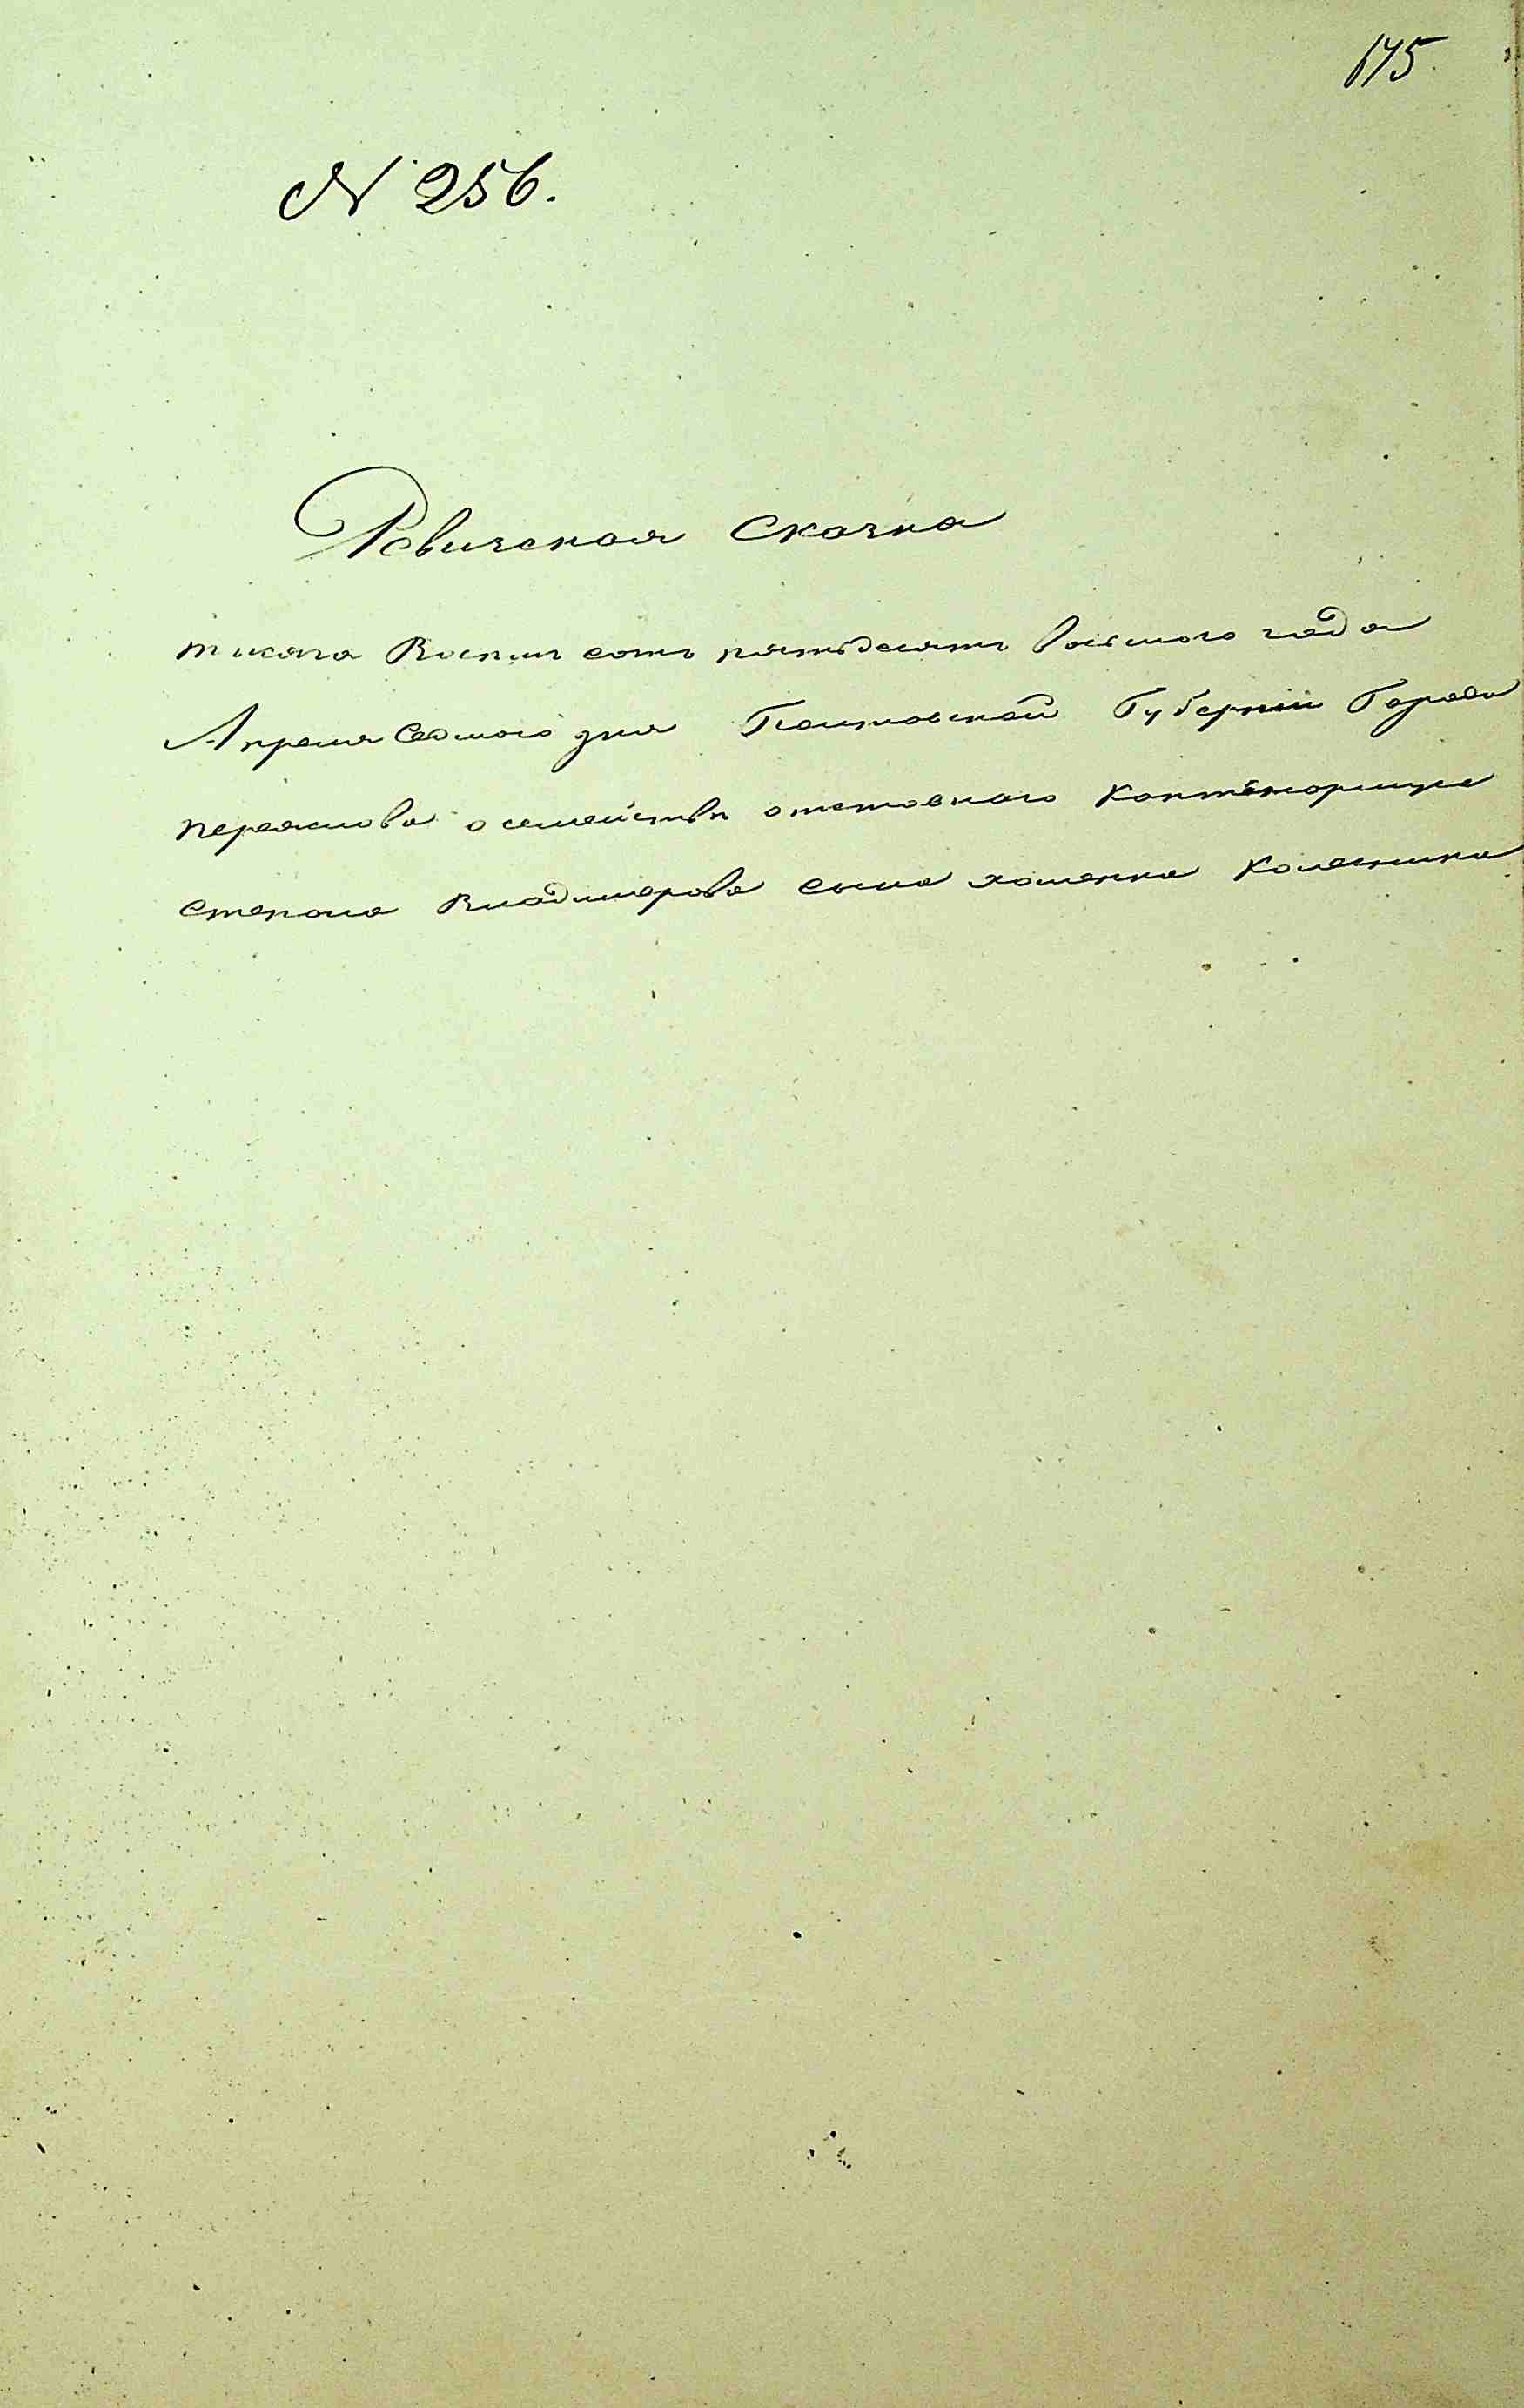 675.
N 256.
Ревизская сказка
тысяча Восемь сотъ пятьдесятъ восьмого года
Апреля Седмого дня Полтовской Губернии Города
переяслова о семействе отставного
степана Владимерова сына хоменка колесника